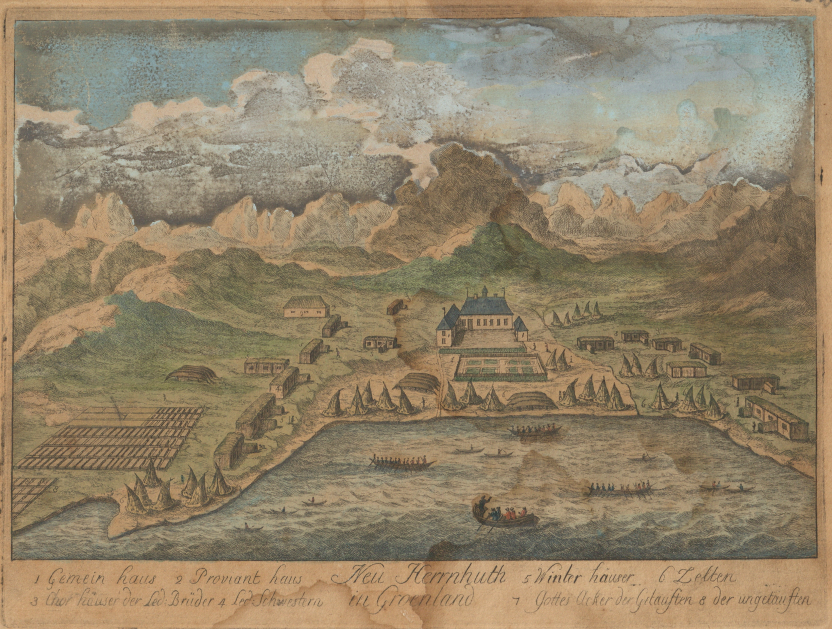 1 Gemein haus 2 Proviant haus Neu Herrnhuth 5 Winter häuser 6 Zelten
3 Chor häuser der Led. Brüder 4 led. Schwestern in Groenland 7 Gottes Acker der Getauften 8 der ungetauften